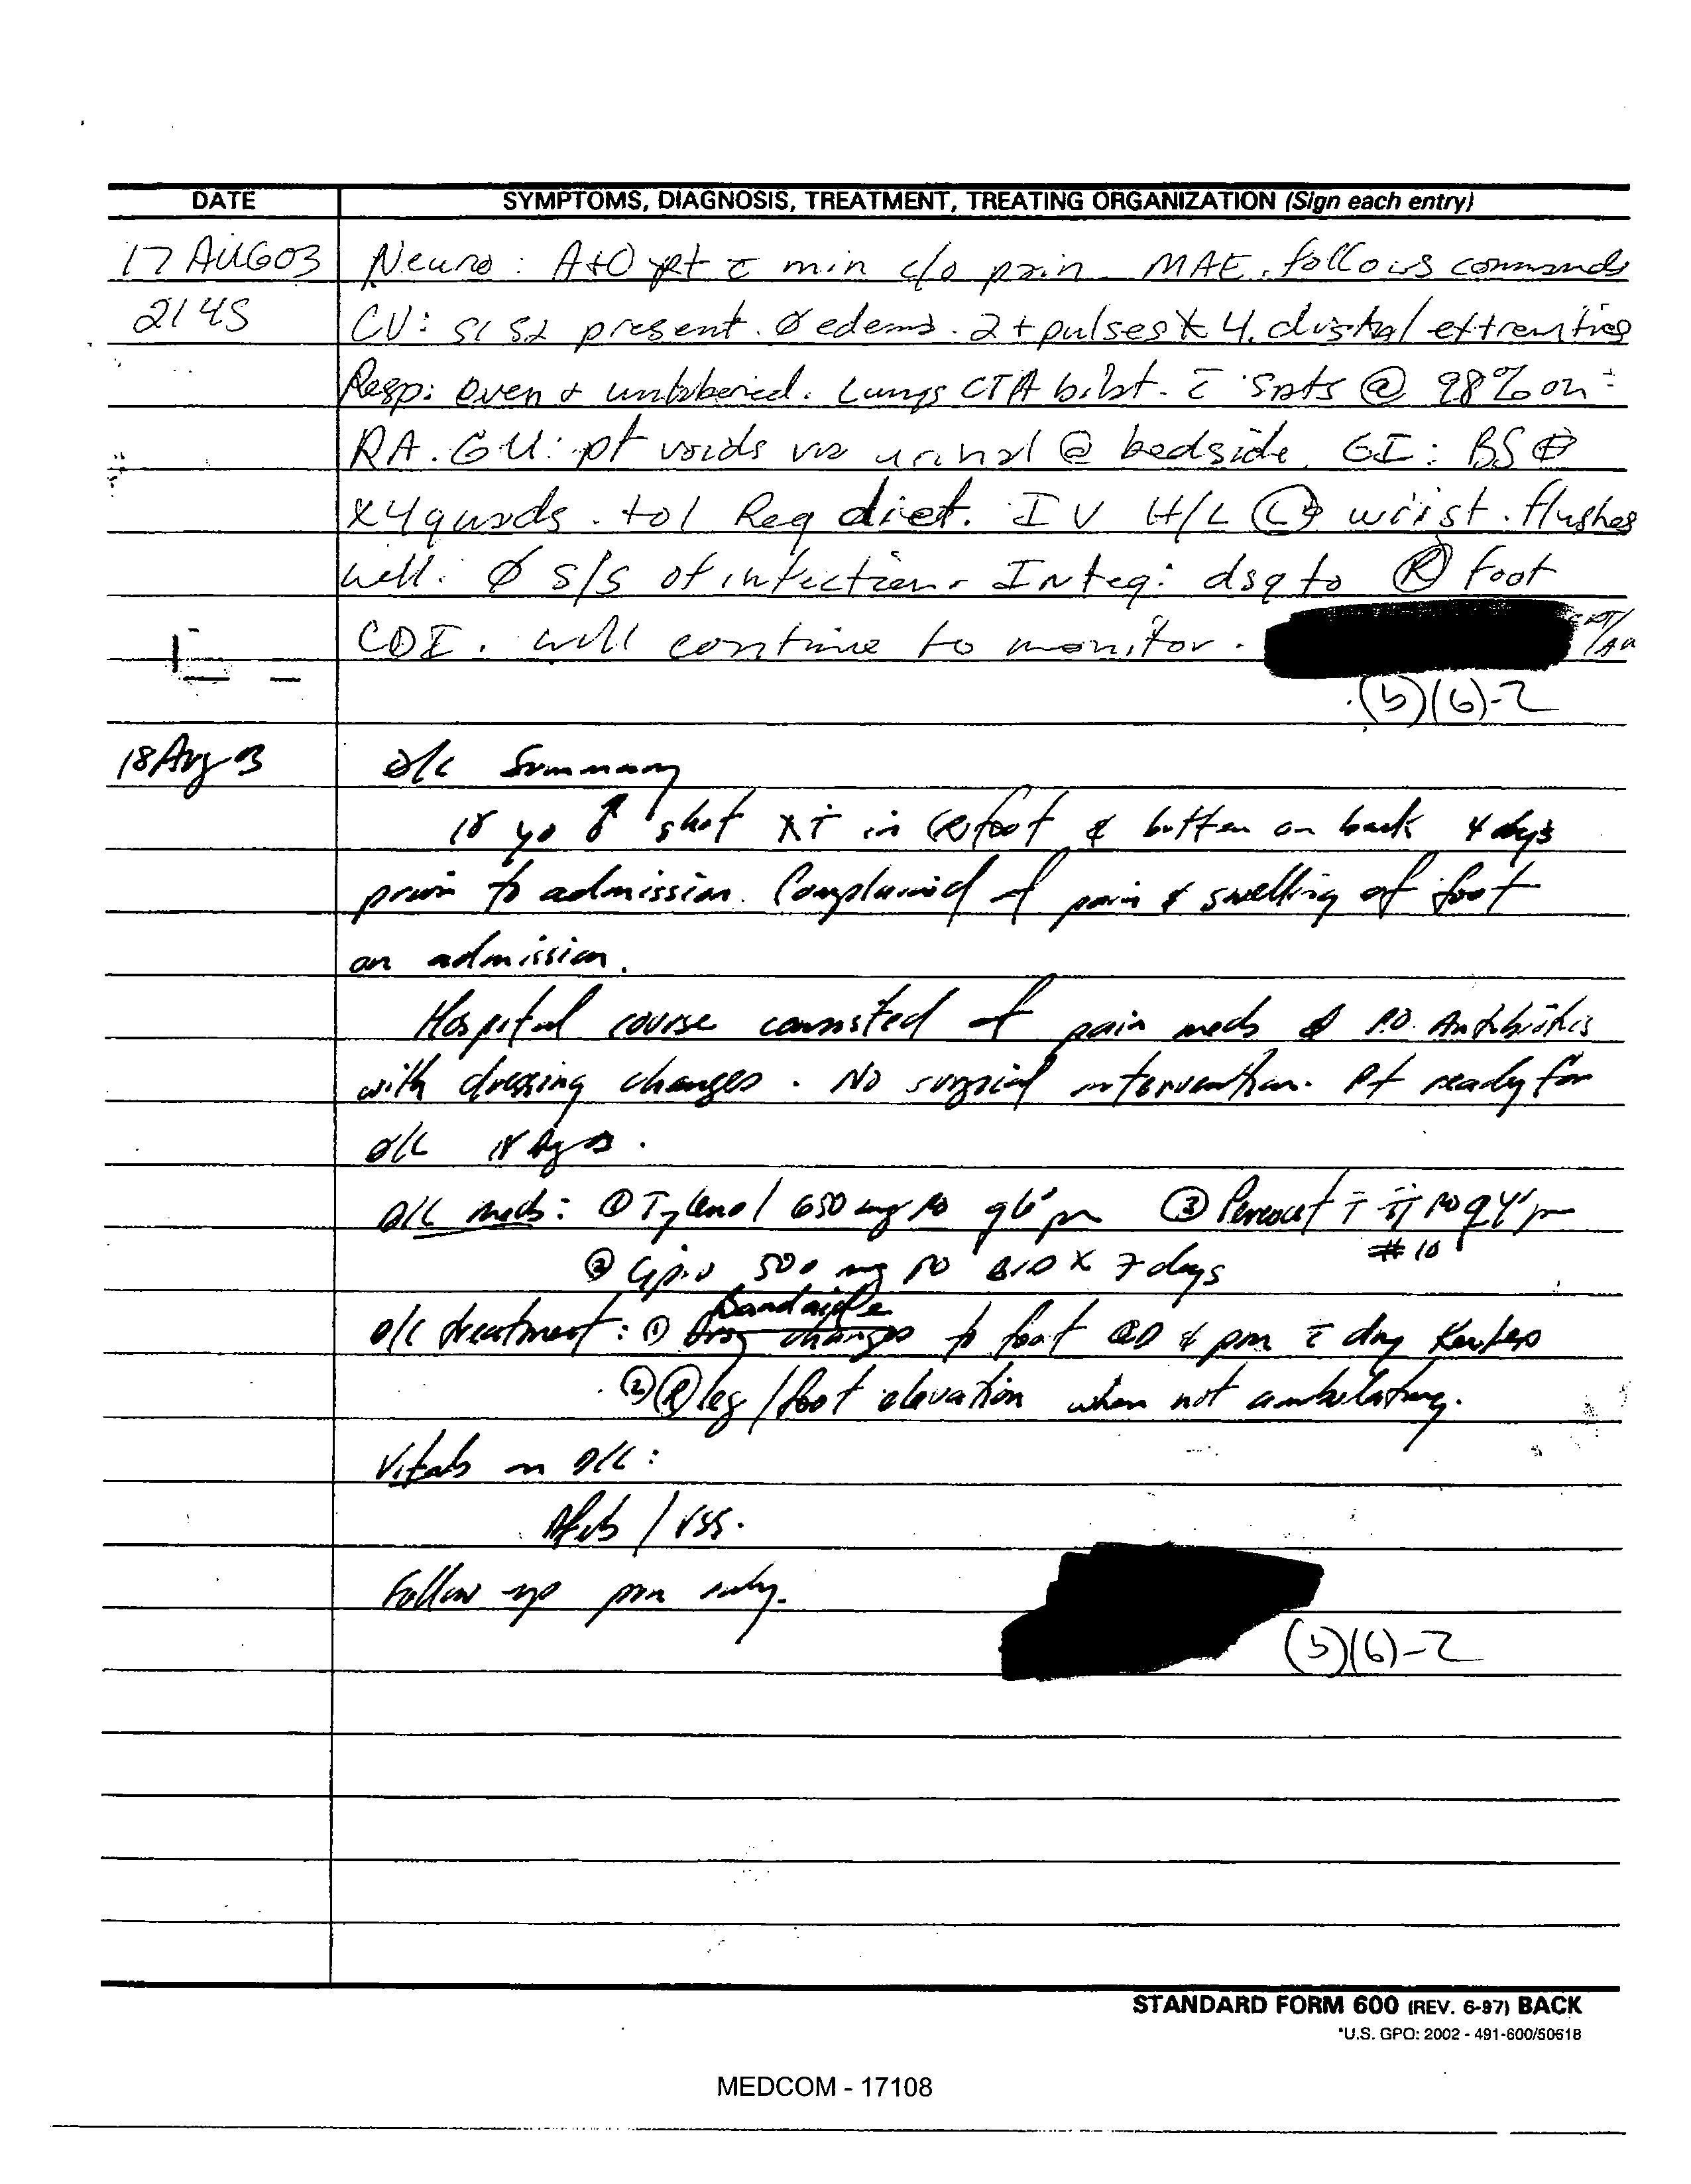 DATE SYMPTOMS, DIAGNOSIS, TREATMENT, TREATING ORGANIZATION (Sign each entry)
17 AUG03 Neuro: A+O pt c̄ min c/o pain MAE. follows commands
2145 CV: S1 S2 present. Ø edema. 2+ pulses x 4. distal extremities
Resp: even + unlabored. Lungs CTA bilat. c̄ sats @ 98% on
RA. GU: pt voids via urinal @ bedside. GI: BS ⊕
x4 quads. tol Reg diet. IV H/L Ⓛ wrist. flushes
well. Ø s/s of infection. Integ: dsg to Ⓡ foot
CDI. will continue to monitor.
(b)(6)-2
18 Aug 03 D/C Summary
18 yo ♂ shot x T in Ⓡ foot & button on back 4 days
prior to admission. Complained of pain & swelling of foot
on admission.
Hospital course consisted of pain meds & P.O. Antibiotics
with dressing changes. No surgical intervention. Pt ready for
D/C 18 Ag 03.
D/C meds: ① Tylenol 650 mg po q6° prn ③ Percocet T-TT po q4° prn
#10
② Cipro 500 mg po BID x 7 days
Bandaide
D/C treatment: ① Drsg changes to foot QD & prn c̄ dry Kerlex
② Ⓡ leg/foot elevation when not ambulating.
Vitals on D/C:
Afeb / VSS.
Follow up prn only.
(b)(6)-2
STANDARD FORM 600 (REV. 6-97) BACK
*U.S. GPO: 2002 - 491-600/50618
MEDCOM - 17108